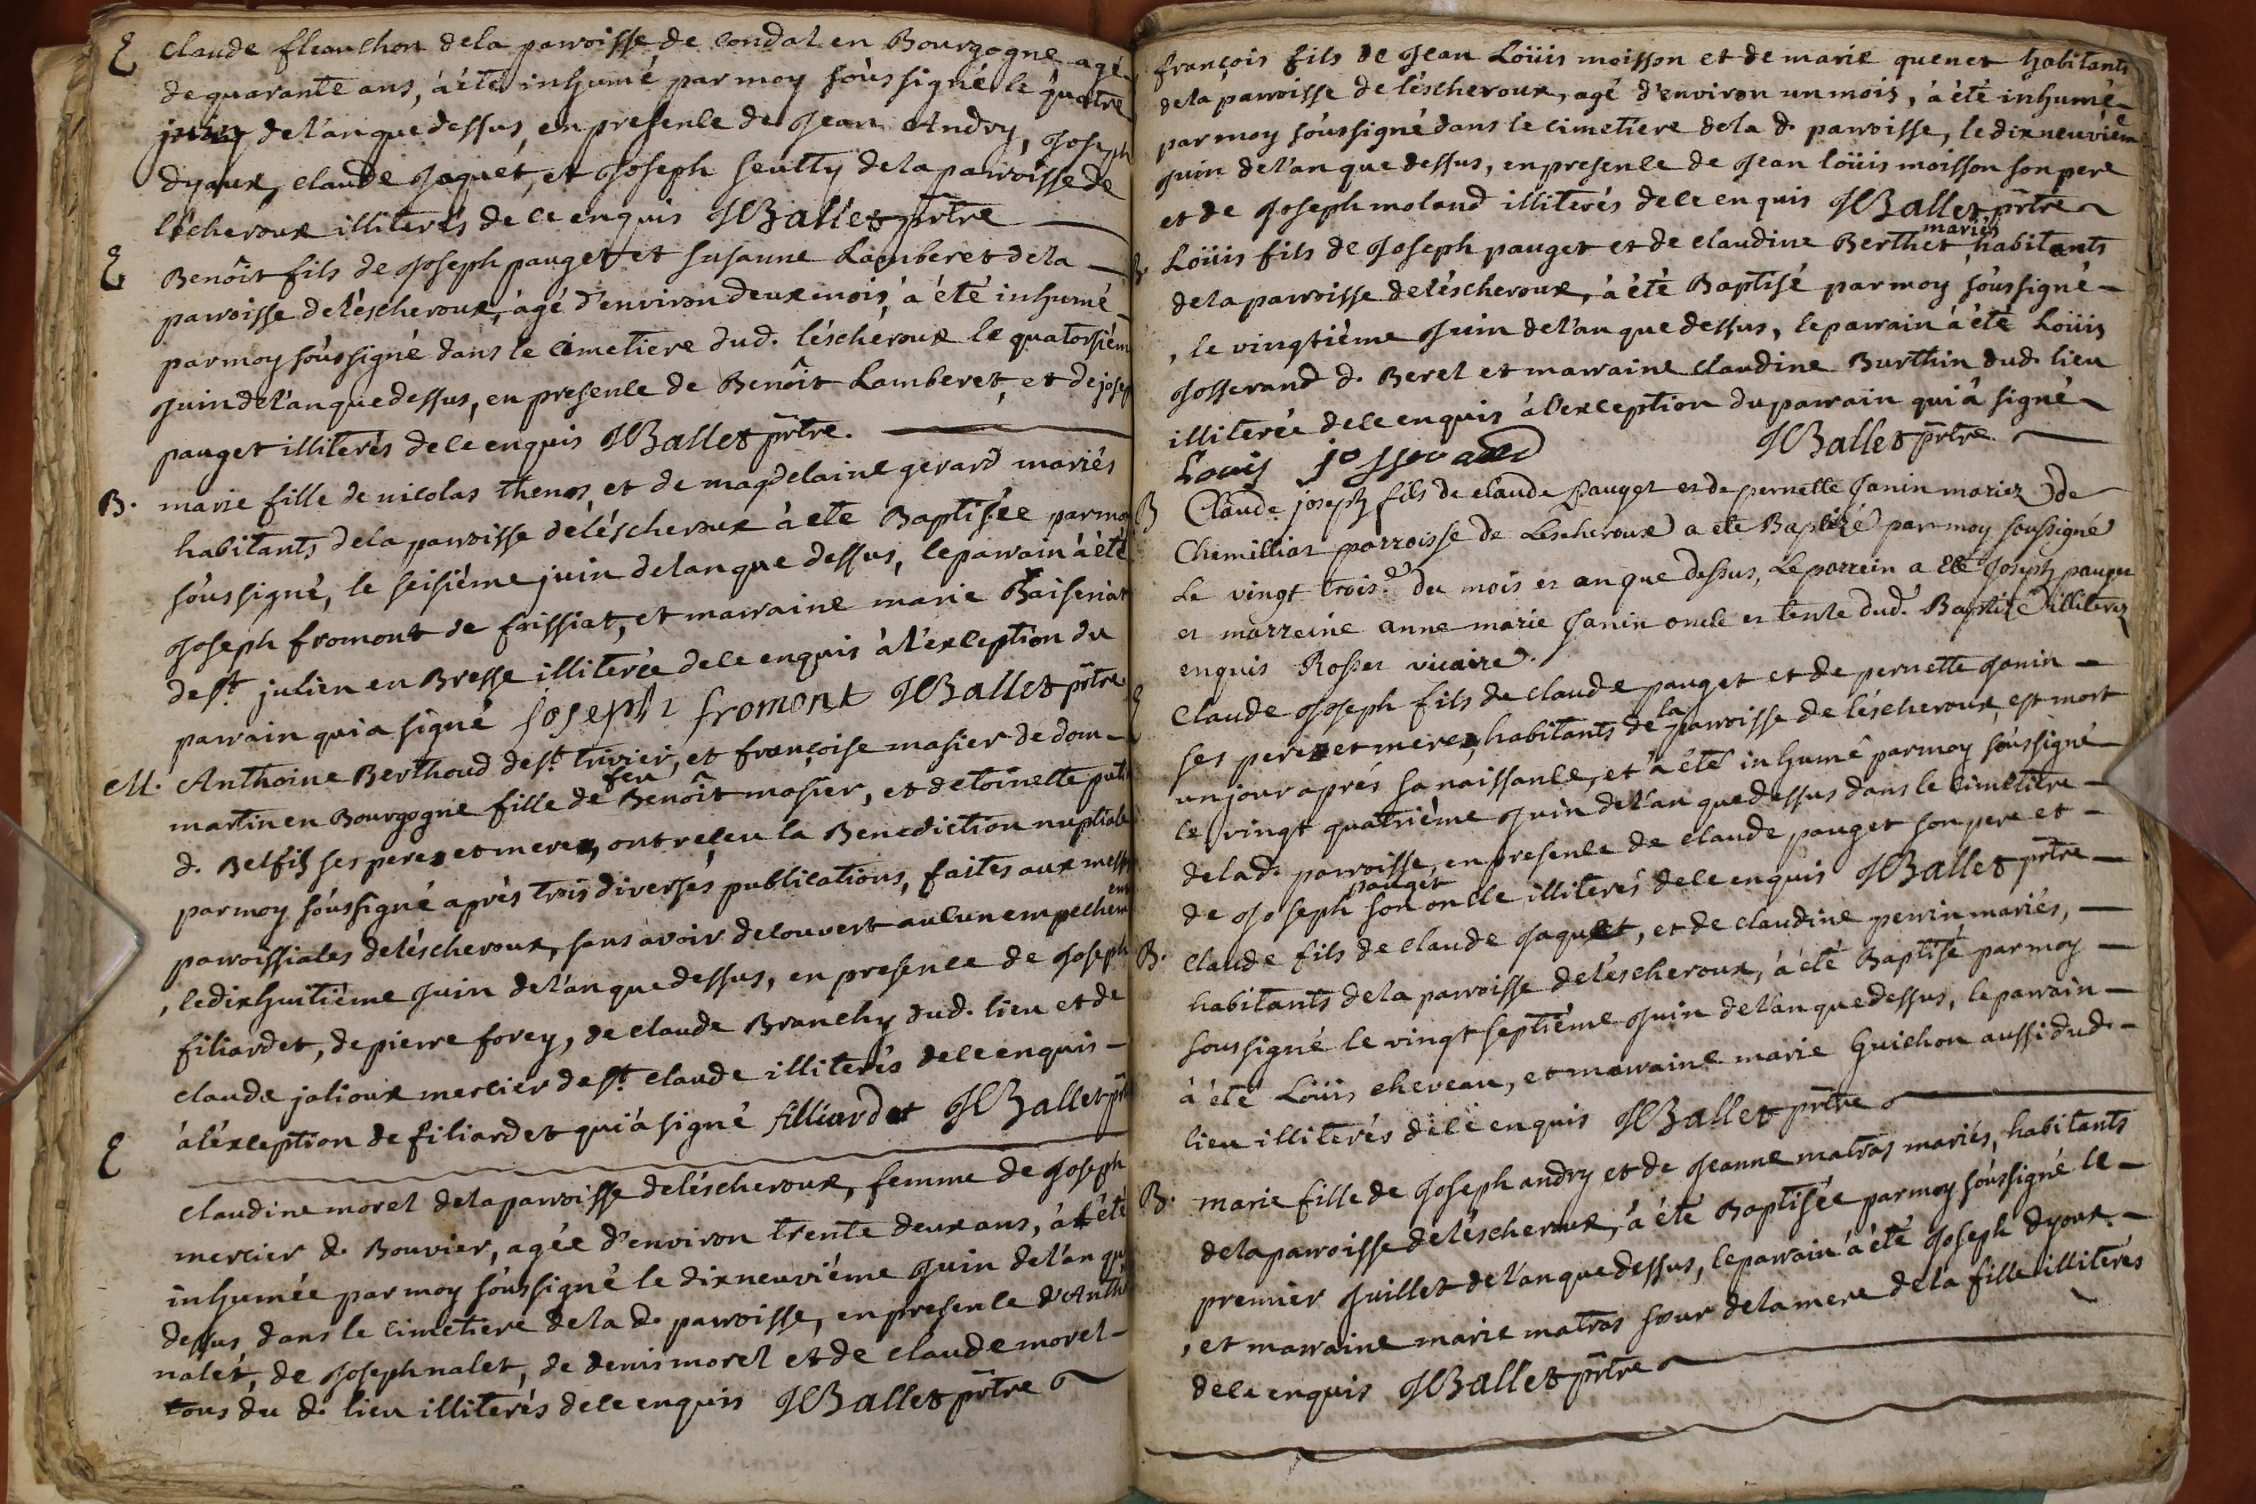 E Claude fleanchon dela parroisse de Condal en Bourgogne agé
de quarante ans, à été inhumé par moy sóussigné le quatre
juin de l'an que dessus, en presence de Jean Andry, Joseph
dyaux, claude Jaquet, et Joseph seutty de la parroisse de
léscheroux illiterés de ce enquis JBallet prtre
E Benôit fils de Joseph pauget et susanne Lamberet dela
parroisse de léscheroux, àgé d'environ deux mois, à été inhumé
par moy sóussigné dans le cimetiere dud. léscheroux le quatorsiém
Juin de l'an que dessus, en presence de Benôit Lamberet, et de josep
pauget illiterés de ce enquis JBallet prtre.
B. marie fille de nicolas thenos et de magdelaine gerard mariés
habitants dela parroisse de léscheroux à eté Baptisée par mo
sóussigné, le seisiéme juin de l'an que dessus, le parrain à été
Joseph fromont de foissiat, et marraine marie Baiseriat
de st. julien en Bresse illiterée de ce enquis à l'exception du
parrain qui a signé joseph fromont JBallet prtre
M. Anthoine Berthoud de st. trivier, et françoise masier de dom-
martin en Bourgogne fille de feu Benôit masier, et de toinette put
d. Belfis ses peres et meres, ont reçeu la Benediction nuptiale
par moy sóussigné aprés trois diverses publications, faites aux mess
parroissiales de léscheroux, sans avoir decouvert aucun empechem ent
, le dixhuitiéme Juin de l'an que dessus, en presence de Joseph
filiardet, de pierre forey, de claude Branchy dud. lieu et de
claude jalioux mercier de st. claude illiterés de ce enquis -
à l'éxception de filiardet qui à signé filliardet JBallet prt
E claudine morel dela parroisse de léscheroux, femme de Joseph
mercier d. Bouvier, agée d'environ trente deux ans, à été
inhumée par moy sóussigné le dixneuviéme Juin de l'an qu
dessus dans le cimetiere de la d. parroisse, en presence d'Anth
nalet, de Joseph nalet, de denis morel et de claude morel -
tous du d. lieu illiterés de ce enquis JBallet prtre
françois fils de Jean Loüis moisson et de marie quenet habitants
dela parroisse de léscheroux, agé d'environ un mois, à été inhumé
par moy sóussigné dans le cimetiere dela d. parroisse, le dixneuviéme
Juin de l'an que dessus, en presence de Jean loüis moisson son pere
et de Joseph moland illiterés de ce enquis JBallet prtre
B. Loüis fils de Joseph pauget et de claudine Berthet mariés habitants
dela parroisse de léscheroux, à été Baptisé par moy sóussigné -
, le vingtiéme Juin de l'an que dessus, le parrain à été Loüis
Josserand d. Berel et marraine claudine Burthin dud. lieu
illiterée de ce enquis à l'exception du parrain qui à signé
Louis josserand JBallet prtre.
B Claude joseph fils de claude Pauget et de pernette Janin mariez de
Chemilliat parroisse de Lescheroux a eté Baptizé par moy soussigné
Le vingt trois.e du mois et an que dessus, Le parrein a eté Joseph pauget
et marreine anne marie Janin oncle et tente dud. Baptizé illiterez
enquis Rosset vicaire.
E Claude Joseph fils de claude pauget et de pernette Janin -
ses peres et meres, habitants de la parroisse de léscheroux, est mort
un jour aprés sa naissance, et à été inhumé par moy sóussigné
le vingt quatriéme Juin de l'an que dessus dans le cimetiere -
de la d. parroisse, en presence de claude pauget son pere et -
de Joseph pauget son oncle illiterés de ce enquis JBallet prtre -
B. claude fils de claude Jaquet, et de claudine perrin mariés, -
habitants dela parroisse de léscheroux, à eté Baptisé par moy -
soussigné le vingt septiéme Juin de l'an que dessus, le parrain -
à été Loüis cheveau, et marraine marie Guichon aussi dud. -
lieu illiterés de ce enquis JBallet prtre
B. marie fille de Joseph andry et de Jeanne matras mariés, habitants
dela parroisse de léscheroux, à été Baptisée par moy sóussigné le -
premier Juillet de l'an que dessus, le parrain à été Joseph dyoux -
, et marraine marie matras sœur de la mere de la fille illiterés
de ce enquis JBallet prtre